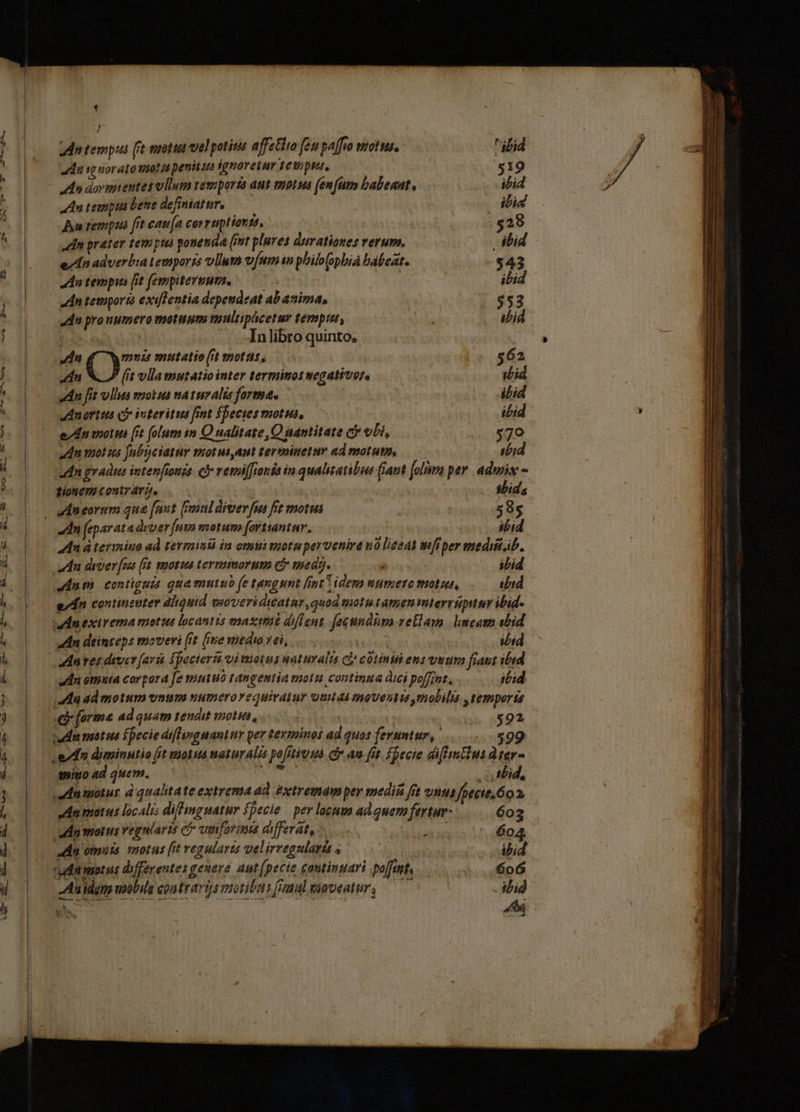 An tempus sit motus vel potius affectio seu passio motus. ibid
An ignorato motu penitus ignoretur tempus. 519
An dormientes ullum temporis aut motus sensum habeant. ibid
An tempus bene definiatur. ibid
An tempus sit causa corruptionis. 528
An præter tempus ponenda sint plures durationes rerum. ibid
An adverbia temporis ullum usum in philosophiâ habeat. 543
An tempus sit sempiternum. ibid
An temporis existentia dependeat ab anima. 553
An pro numero motuum multiplicetur tempus, ibid
In libro quinto.
An Omnis mutatio sit motus. 562
An sit ulla mutatio inter terminos negativos. ibid
An sit ullus motus naturalis formæ. ibid
An ortus & interitus sint species motus. ibid
An motus sit solum in Qualitate, Quantitate & ubi, 570
An motus subijciatur motus, aut terminetur ad motum, ibid
An gradus intensionis & remissionis in qualitatibus fiant solùm per admix-
tionem contrarij. ibid.
An eorum quæ sunt simul diversus sit motus 585
An separata diversum motum sortiantur. ibid
An à termino ad terminū in omni motu pervenire nō liceat nisi per mediū. ib.
An diversus sit motus terminorum & medij. ibid
An contiguis quæ mutuò se tangunt sint idem numero motus, ibid
An continenter aliquid moveri dicatur, quod motu tamen interrūpitur ibid.
An extrema motus locantis maximè distent secundùm rectam lineam ibid
An deinceps moveri sit sine medio rei, ibid
An res diversaru specierū vi motus naturalis & cōtinui ens unum fiant ibid
An omnia corpora se mutuò tangentia motu continua dici possint. ibid
An ad motum unum numero requiratur unitas moventis, mobilis, temporis
& formæ ad quam tendit motus, 592
An motus specie distinguantur per terminos ad quos feruntur, 599
An diminutio sit motus naturalis positivus & an sit specie distinctus à ter-
mino ad quem. ibid,
An motus à qualitate extrema ad extremam per mediū sit unus specie, 602
An motus localis distinguatur specie per locum ad quem fertur. 603
An motus regularis & uniformis differat, 604
An omnis motus sit regularis vel irregularis. ibid
An motus differentes genere aut specie continuari possint, 606
An idem mobile contrarijs motibus simul moveatur, ibid
An